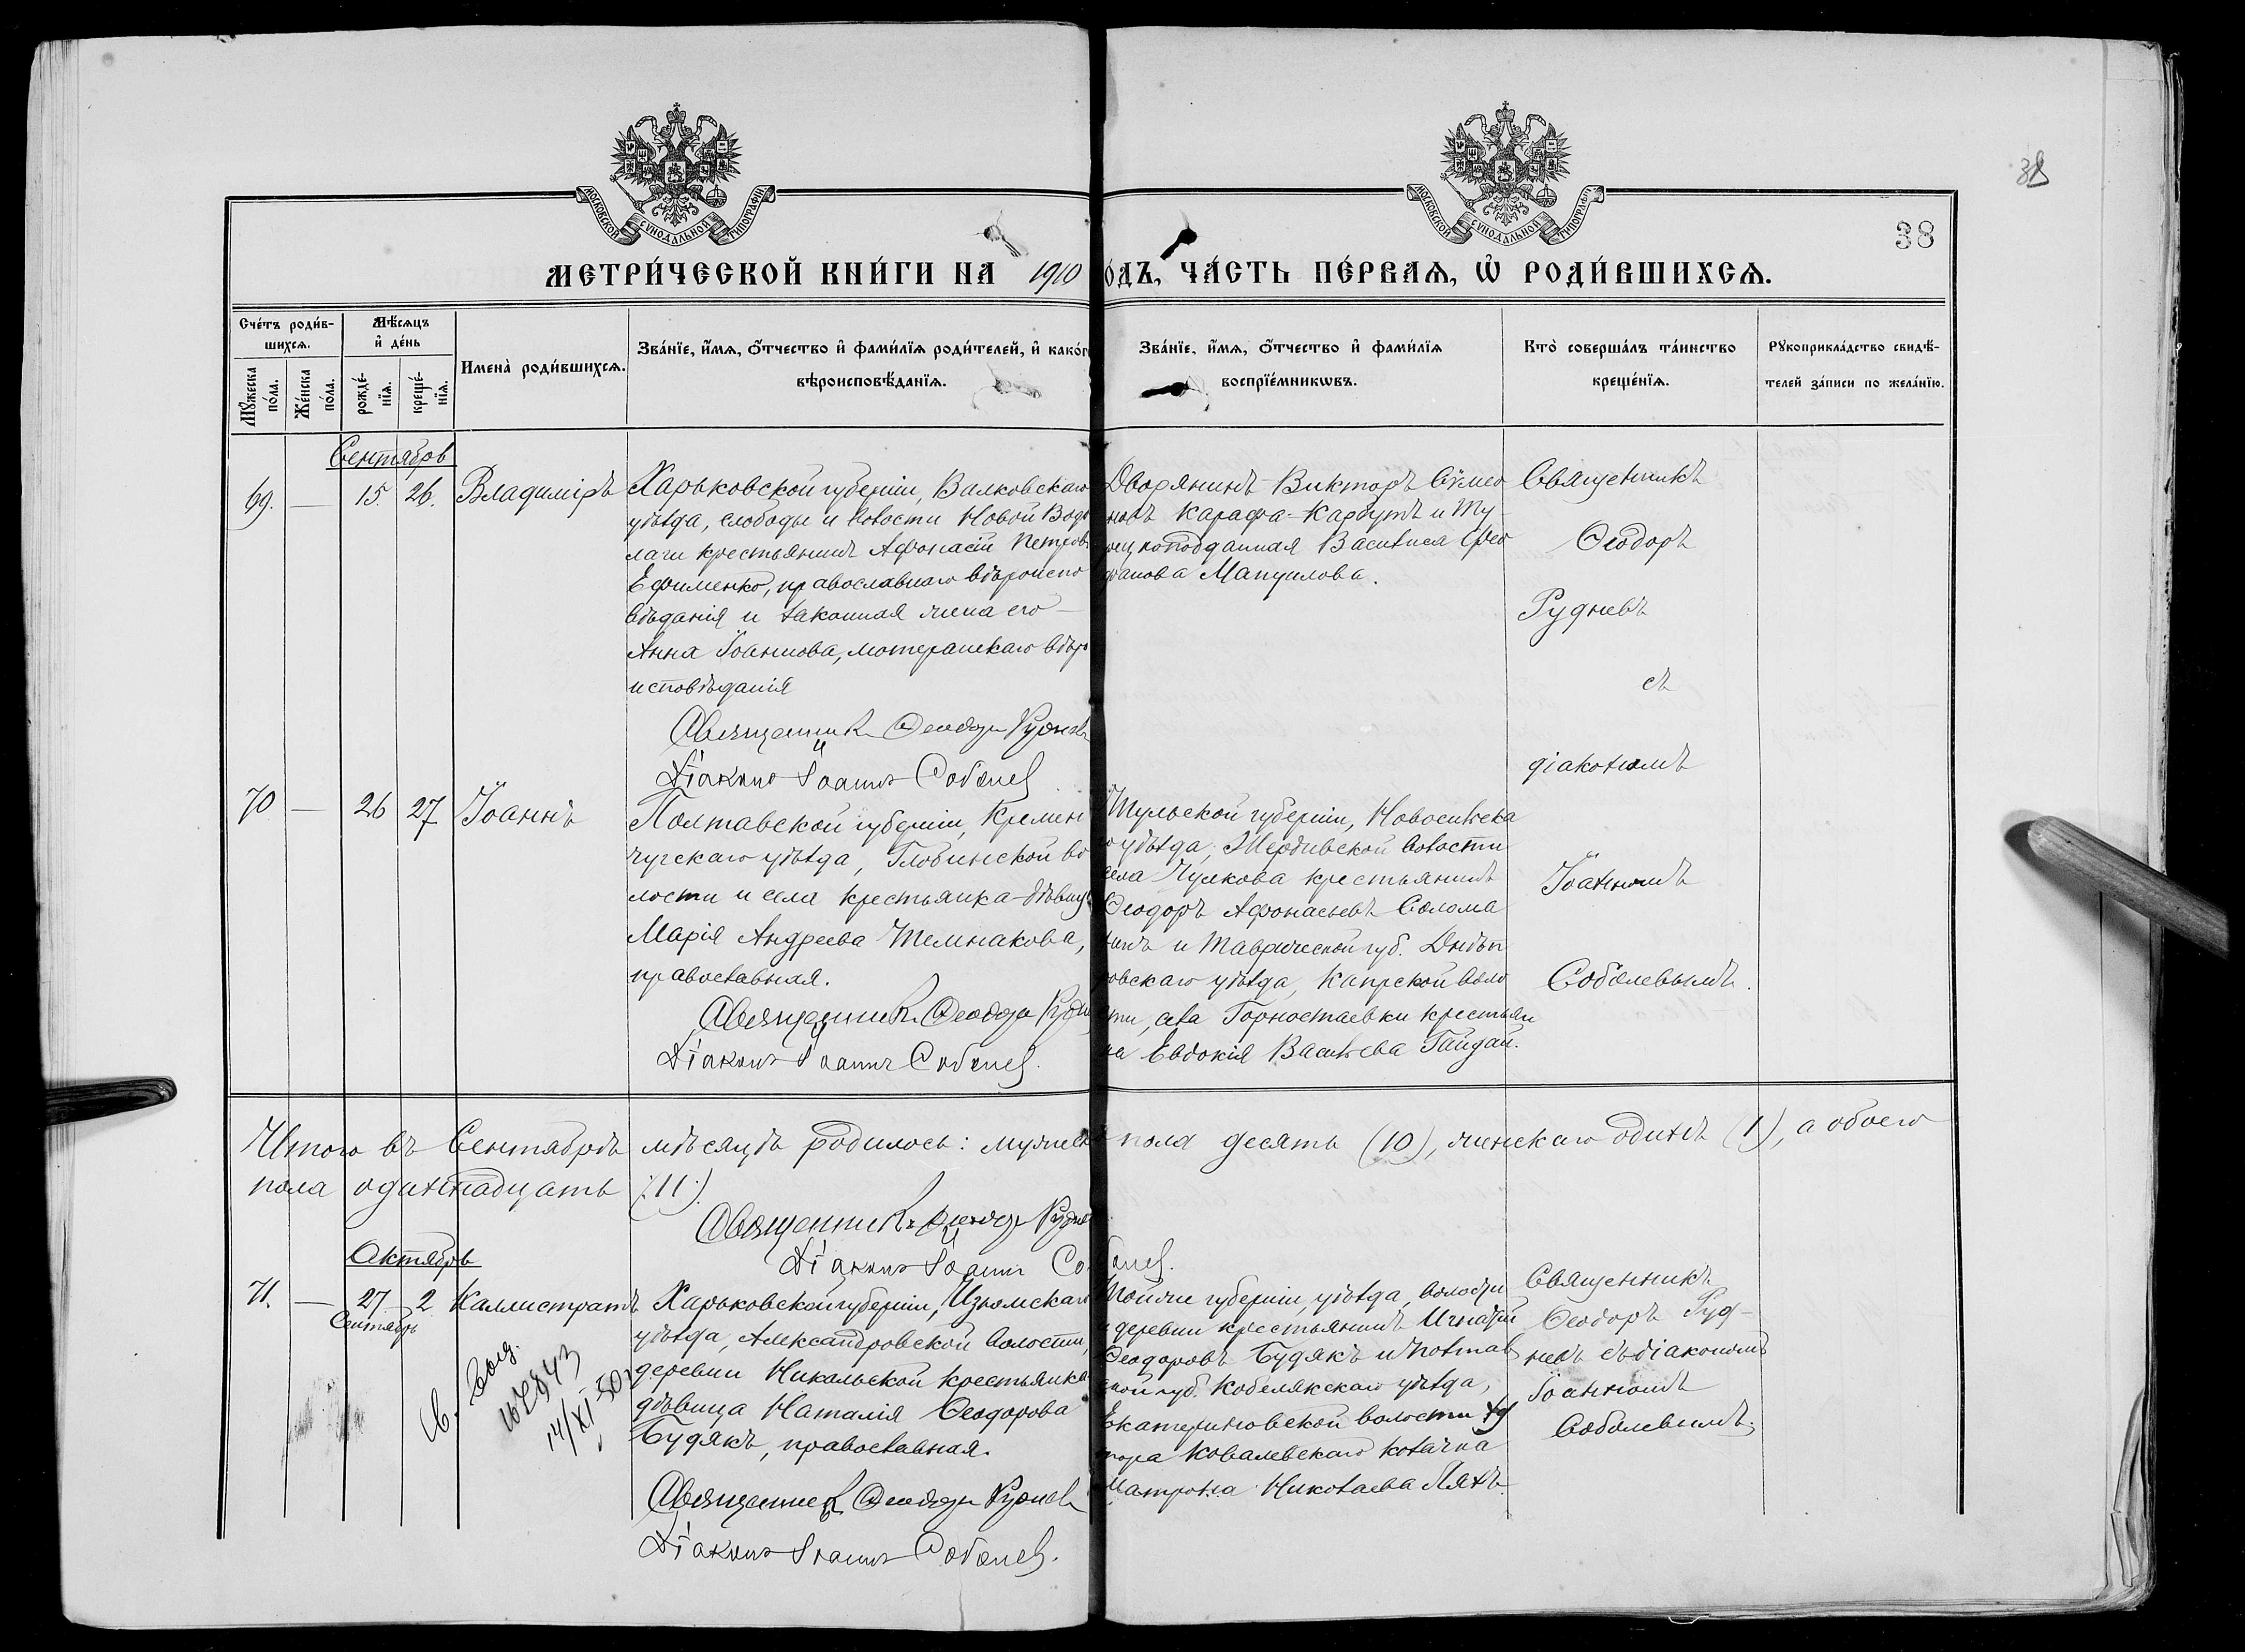 38
38
МОСКОВСКОЙ СУНОДАЛЬНОЙ ТИПОГРАФІИ
МОСКОВСКОЙ СУНОДАЛЬНОЙ ТИПОГРАФІИ
МЕТРИ́ЧЕСКОЙ КНИ́ГИ НА 1910
О́ДЪ, ЧА́СТЬ ПЕ́РВАѦ, Ѡ҆ РОДИ́ВШИХСѦ.
Сче́тъ роди́в-
шихсѧ.
Мꙋ́жеска
по́ла.
Же́нска
по́ла.
Мѣ́сѧцъ
и҆ де́нь
рожде́-
нїѧ.
креще́-
нїѧ.
Имена̀ роди́вшихсѧ.
Зва́нїе, и҆́мѧ, ѻ҆́тчество и҆ фами́лїѧ роди́телей, и҆ како́г
вѣроисповѣ́данїѧ.
Зва́нїе, и҆́мѧ, ѻ҆́тчество и҆ фами́лїѧ
воспрїе́мникѡвъ.
Кто̀ соверша́лъ та́инство
креще́нїѧ.
Рꙋкоприкла́дство свидѣ́-
телей за́писи по жела́нїю.
Сентябрь
69. — 15. 26. Владиміръ
Харьковской губерніи, Валковскаго
уѣзда, слободы и волости Новой Водо
лаги крестьянинъ Афонасій Петровъ
Ефименко, православнаго вѣроиспо
вѣданія и законная жена его —
Анна Іоаннова, лютеранскаго вѣро
исповѣданія
Священникъ Ѳеодоръ Рудневъ
Діаконъ Іоаннъ Соболев
Дворянинъ Викторъ Сѵмео
новъ Карафа-Карбутъ и Ту
рецкоподданная Василиса Фео
фанова Мапуилова.
Священникъ
Ѳеодоръ
Рудневъ
съ
діакономъ
Іоанномъ
Соболевымъ.
70 — 26 27 Іоаннъ
Полтавской губерніи, Кремен
чугскаго уѣзда, Глобинской во
лости и села крестьянка-дѣвица
Марія Андреева Темнакова,
православная.
Священникъ Ѳеодоръ Рудн
Діаконъ Іоаннъ Соболев.
Тульской губерніи, Новосильска
го уѣзда, Жердивской волости
села Чулкова крестьянинъ
Ѳеодоръ Афонасьевъ Солома
тинъ и Таврической губ. Днѣп
ровскаго уѣзда, Каирской воло
сти, села Горностаевки крестьян
ка Евдокія Васильева Гайдай.
Итого въ Сентябрѣ мѣсяцѣ родилось: мужеск пола десять (10), женскаго одинъ (1), а обоего
пола одиннадцать (11).
Священникъ Ѳеодоръ Рудне
Діаконъ Іоаннъ Соболев.
Октябрь
71. — 27 2 Каллистратъ
Сентябрь
Св. выд.
14/XI-50
Харьковской губерніи, Изюмскаго
уѣзда, Александровской волости,
деревни Никольской крестьянка
дѣвица Наталія Ѳеодорова
Будякъ, православная.
Священникъ Ѳеодоръ Руднев
Діаконъ Іоаннъ Соболев.
Тойже губерніи, уѣзда, волости
и деревни крестьянинъ Игнатій
Ѳеодоровъ Будякъ и Полтав
ской губ. Кобелякскаго уѣзда,
Екатериновской волости ху
тора Ковалевскаго козачка
Матрона Николаева Ляхъ.
Священникъ
Ѳеодоръ Руд-
невъ съ діакономъ
Іоанномъ
Соболевымъ.